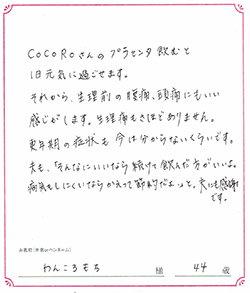 CoCoRoさんのプラセンタ飲むと
1日元気に過ごせます。
それから、生理前の腰痛、頭痛にもいい
感じがします。生理痛もさほどありません。
更年期の症状も今は分からないくらいです。
夫も、「そんなにいいなら続けて飲んだ方がいいよ。
病気もしにくいならかえって節約だヨ」って。夫にも感謝
です。
お名前(本名orペンネーム)
わんころもち 様 44 歳